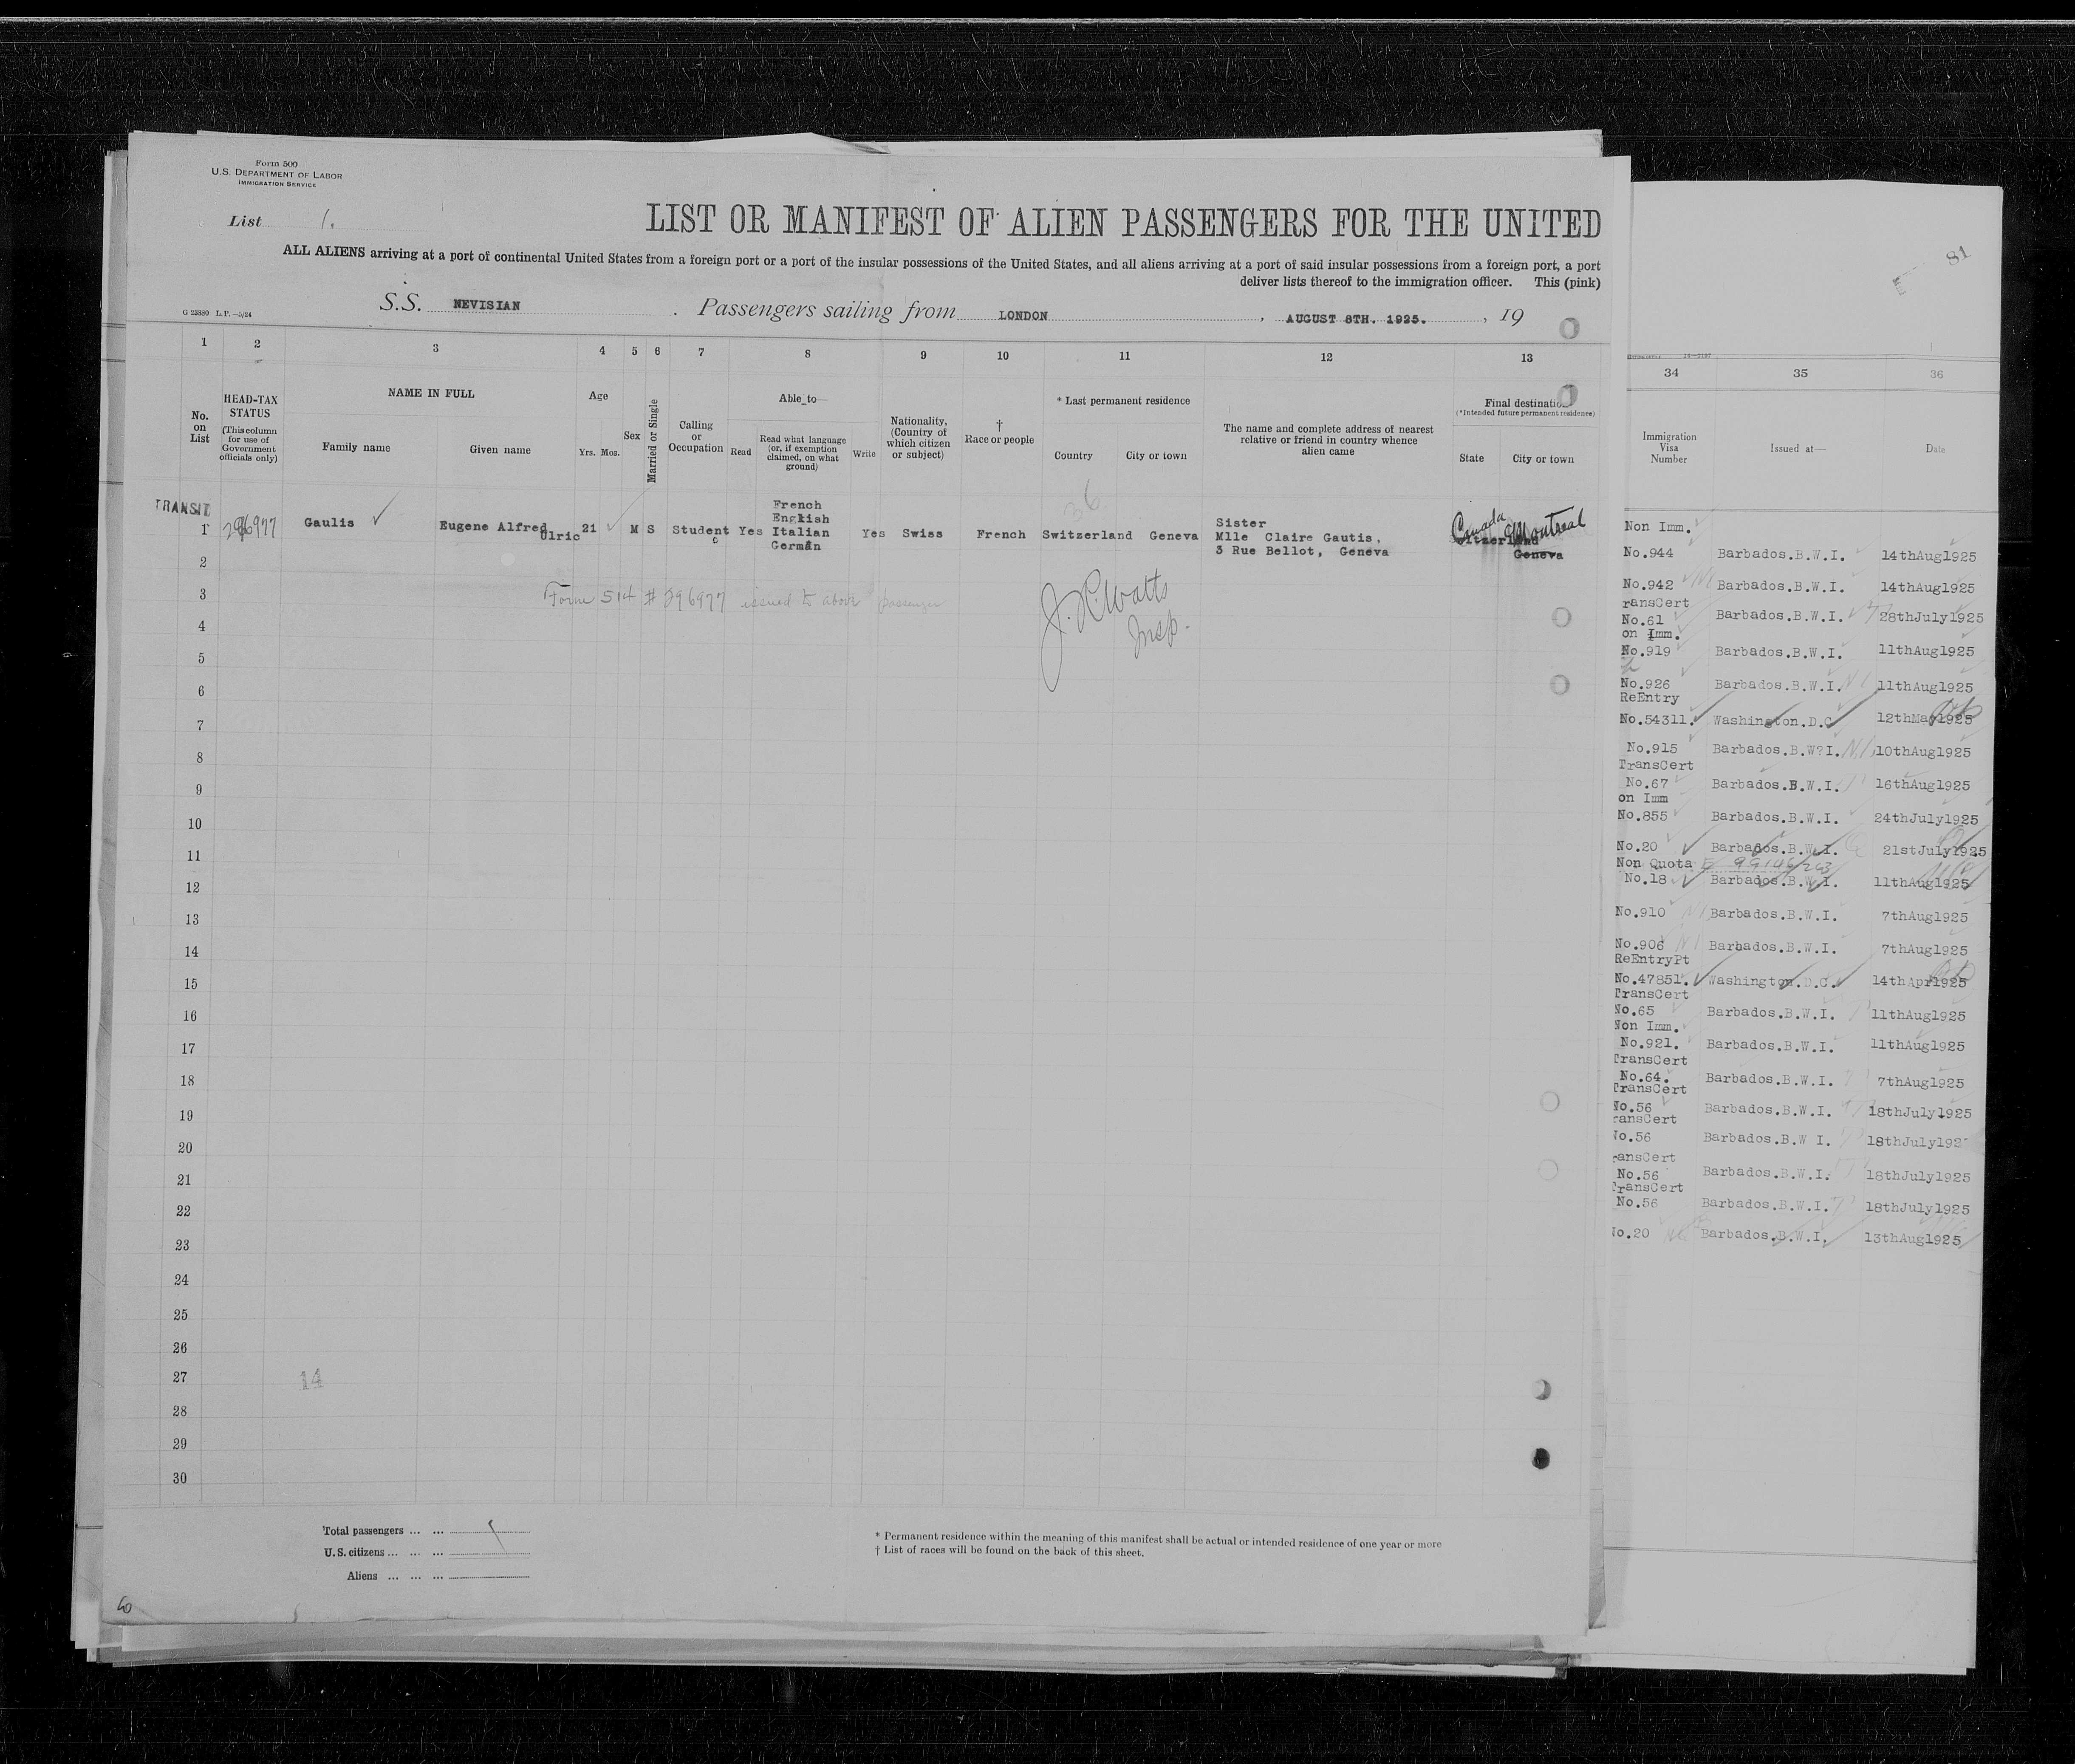 Form 500
U.S. DEPARTMENT OF LABOR
IMMIGRATION SERVICE
List 1.
LIST OR MANIFEST OF ALIEN PASSENGERS FOR THE UNITED
ALL ALIENS arriving at a port of continental United States from a foreign port or a port of the insular possessions of the United States, and all aliens arriving at a port of said insular possessions from a foreign port, a port
deliver lists thereof to the immigration officer. This (pink)
S.S. NEVISIAN . Passengers sailing from LONDON , AUGUST 8TH. 1925. , 19
G 23880 L.P.—5/24
1 2 3 4 5 6 7 8 9 10 11 12 13
No. on List
HEAD-TAX STATUS
(This column for use of Government officials only)
NAME IN FULL
Family name
Given name
Age
Yrs. Mos.
Sex
Married or Single
Calling or Occupation
Able to—
Read
Read what language (or, if exemption claimed, on what ground)
Write
Nationality, (Country of which citizen or subject)
† Race or people
* Last permanent residence
Country
City or town
The name and complete address of nearest relative or friend in country whence alien came
Final destination
(*Intended future permanent residence)
State
City or town
36
TRANSIT
1 296977 Gaulis Eugene Alfred Ulric 21 M S Student Yes French English Italian German Yes Swiss French Switzerland Geneva Sister
Mlle Claire Gautis,
3 Rue Bellot, Geneva
Canada Montreal
Geneva
2
3 Form 514 # 296977 issued to above passenger
J. R. Watts
Insp.
4
5
6
7
8
9
10
11
12
13
14
15
16
17
18
19
20
21
22
23
24
25
26
27
14
28
29
30
Total passengers ... ...
U.S. citizens ... ... ...
Aliens ... ... ...
* Permanent residence within the meaning of this manifest shall be actual or intended residence of one year or more
† List of races will be found on the back of this sheet.
81
34 35 36
Immigration Visa Number
Issued at—
Date
Non Imm.
No.944 Barbados.B.W.I. 14thAug1925
No.942 Barbados.B.W.I. 14thAug1925
ransCert
No.61 Barbados.B.W.I. 28thJuly1925
on Imm.
No.919 Barbados.B.W.I. 11thAug1925
No.926 Barbados.B.W.I. 11thAug1925
ReEntry
No.54311. Washington.D.C 12thMay1925
No.915 Barbados.B.W?I. 10thAug1925
TransCert
No.67 Barbados.B.W.I. 16thAug1925
on Imm
No.855 Barbados.B.W.I. 24thJuly1925
No.20 Barbados.B.W.I. 21stJuly1925
Non Quota
No.18 Barbados.B.W.I. 11thAug1925
No.910 Barbados.B.W.I. 7thAug1925
No.906 Barbados.B.W.I. 7thAug1925
ReEntryPt
No.47851. Washington.D.C. 14thApr1925
TransCert
No.65 Barbados.B.W.I. 11thAug1925
Non Imm.
No.921. Barbados.B.W.I. 11thAug1925
TransCert
No.64. Barbados.B.W.I. 7thAug1925
TransCert
No.56 Barbados.B.W.I. 18thJuly1925
ransCert
No.56 Barbados.B.W I. 18thJuly192
ransCert
No.56 Barbados.B.W.I. 18thJuly1925
TransCert
No.56 Barbados.B.W.I. 18thJuly1925
No.20 Barbados.B.W.I. 13thAug1925